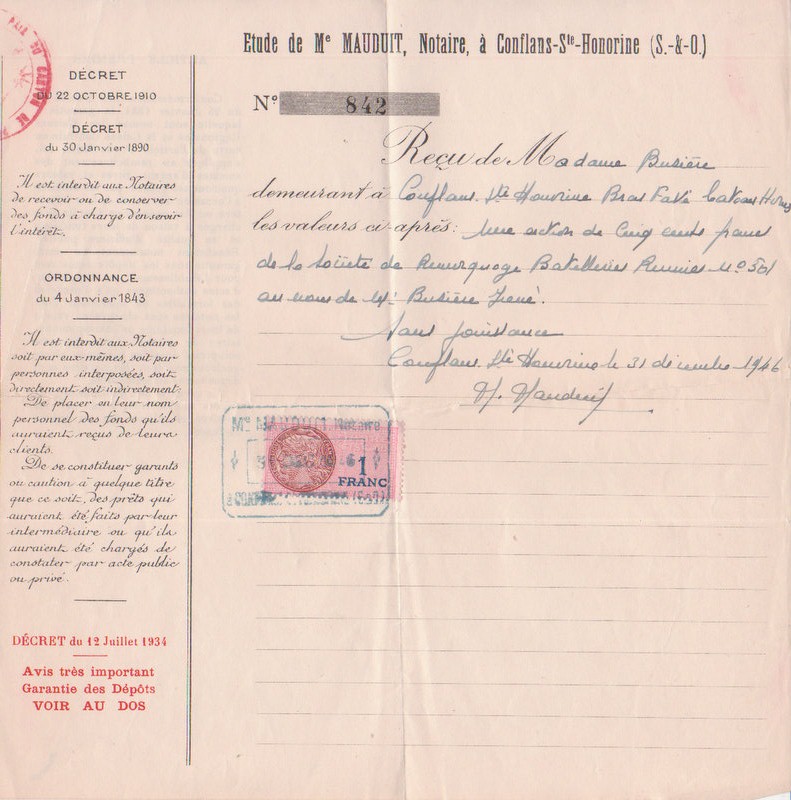 Etude de Mᵉ MAUDUIT, Notaire, à Conflans-Sᵗᵉ-Honorine (S.-&-O.)
Nº 842
Reçu de Madame Busière
demeurant à Conflans. Ste Honorine Bras Favé bateau
les valeurs ci-après: une action de Cinq cents francs
de la Société de Remorquage Batelleries Reunies Nº 561
au nom de Mr Busière René.
Sans jouissance
Conflans. Ste Honorine le 31 décembre 1946
M. Mauduit
1
FRANC
DÉCRET
DU 22 OCTOBRE 1910
DÉCRET
du 30 Janvier 1890
Il est interdit aux Notaires
de recevoir ou de conserver
des fonds à charge d'en servir
l'intérêt.
ORDONNANCE
du 4 Janvier 1843
Il est interdit aux Notaires
soit par eux-mêmes, soit par
personnes interposées, soit
directement soit indirectement:
De placer en leur nom
personnel des fonds qu'ils
auraient reçus de leurs
clients.
De se constituer garants
ou caution à quelque titre
que ce soit, des prêts qui
auraient été faits par leur
intermédiaire ou qu'ils
auraient été chargés de
constater par acte public
ou privé.
DÉCRET du 12 Juillet 1934
Avis très important
Garantie des Dépôts
VOIR AU DOS